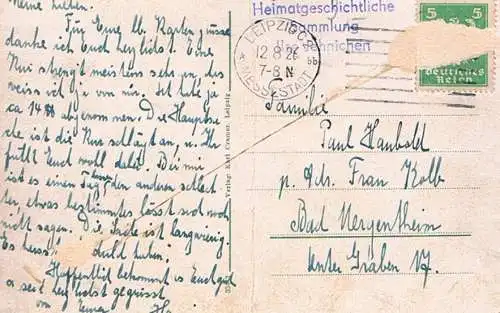 Meine Lieben.
Für Eure lb. Karten
danke ich Euch herzlichst. Eine
Kur strengt meistens sehr an, das
weiss ich je von mir. Ich habe ja
ca 14 ℔ abgenommen. Die Hauptsa-
che ist die Kur schlägt an, u. Ihr
fühlt Euch wohl dabei. Bei mir
ist es einen Tag besser den anderen schlech-
ter, etwas bestimmtes lässt sich noch
nicht sagen. Die Sache ist langwierig.
Es heisst Geduld haben.
Hoffentlich bekommt es Euch gut
u. seid herzlichst gegrüsst
von Eurer
Verlag Karl Cramer, Leipzig
Heimatgeschichtliche
Sammlung
LEIPZIG
12.8.26
7-8 N
MESSESTADT
5 5
Deutsches
Reich
Familie
Paul Haubold
p. Ads. Frau Kolb
Bad Mergentheim
Unter Graben 17.